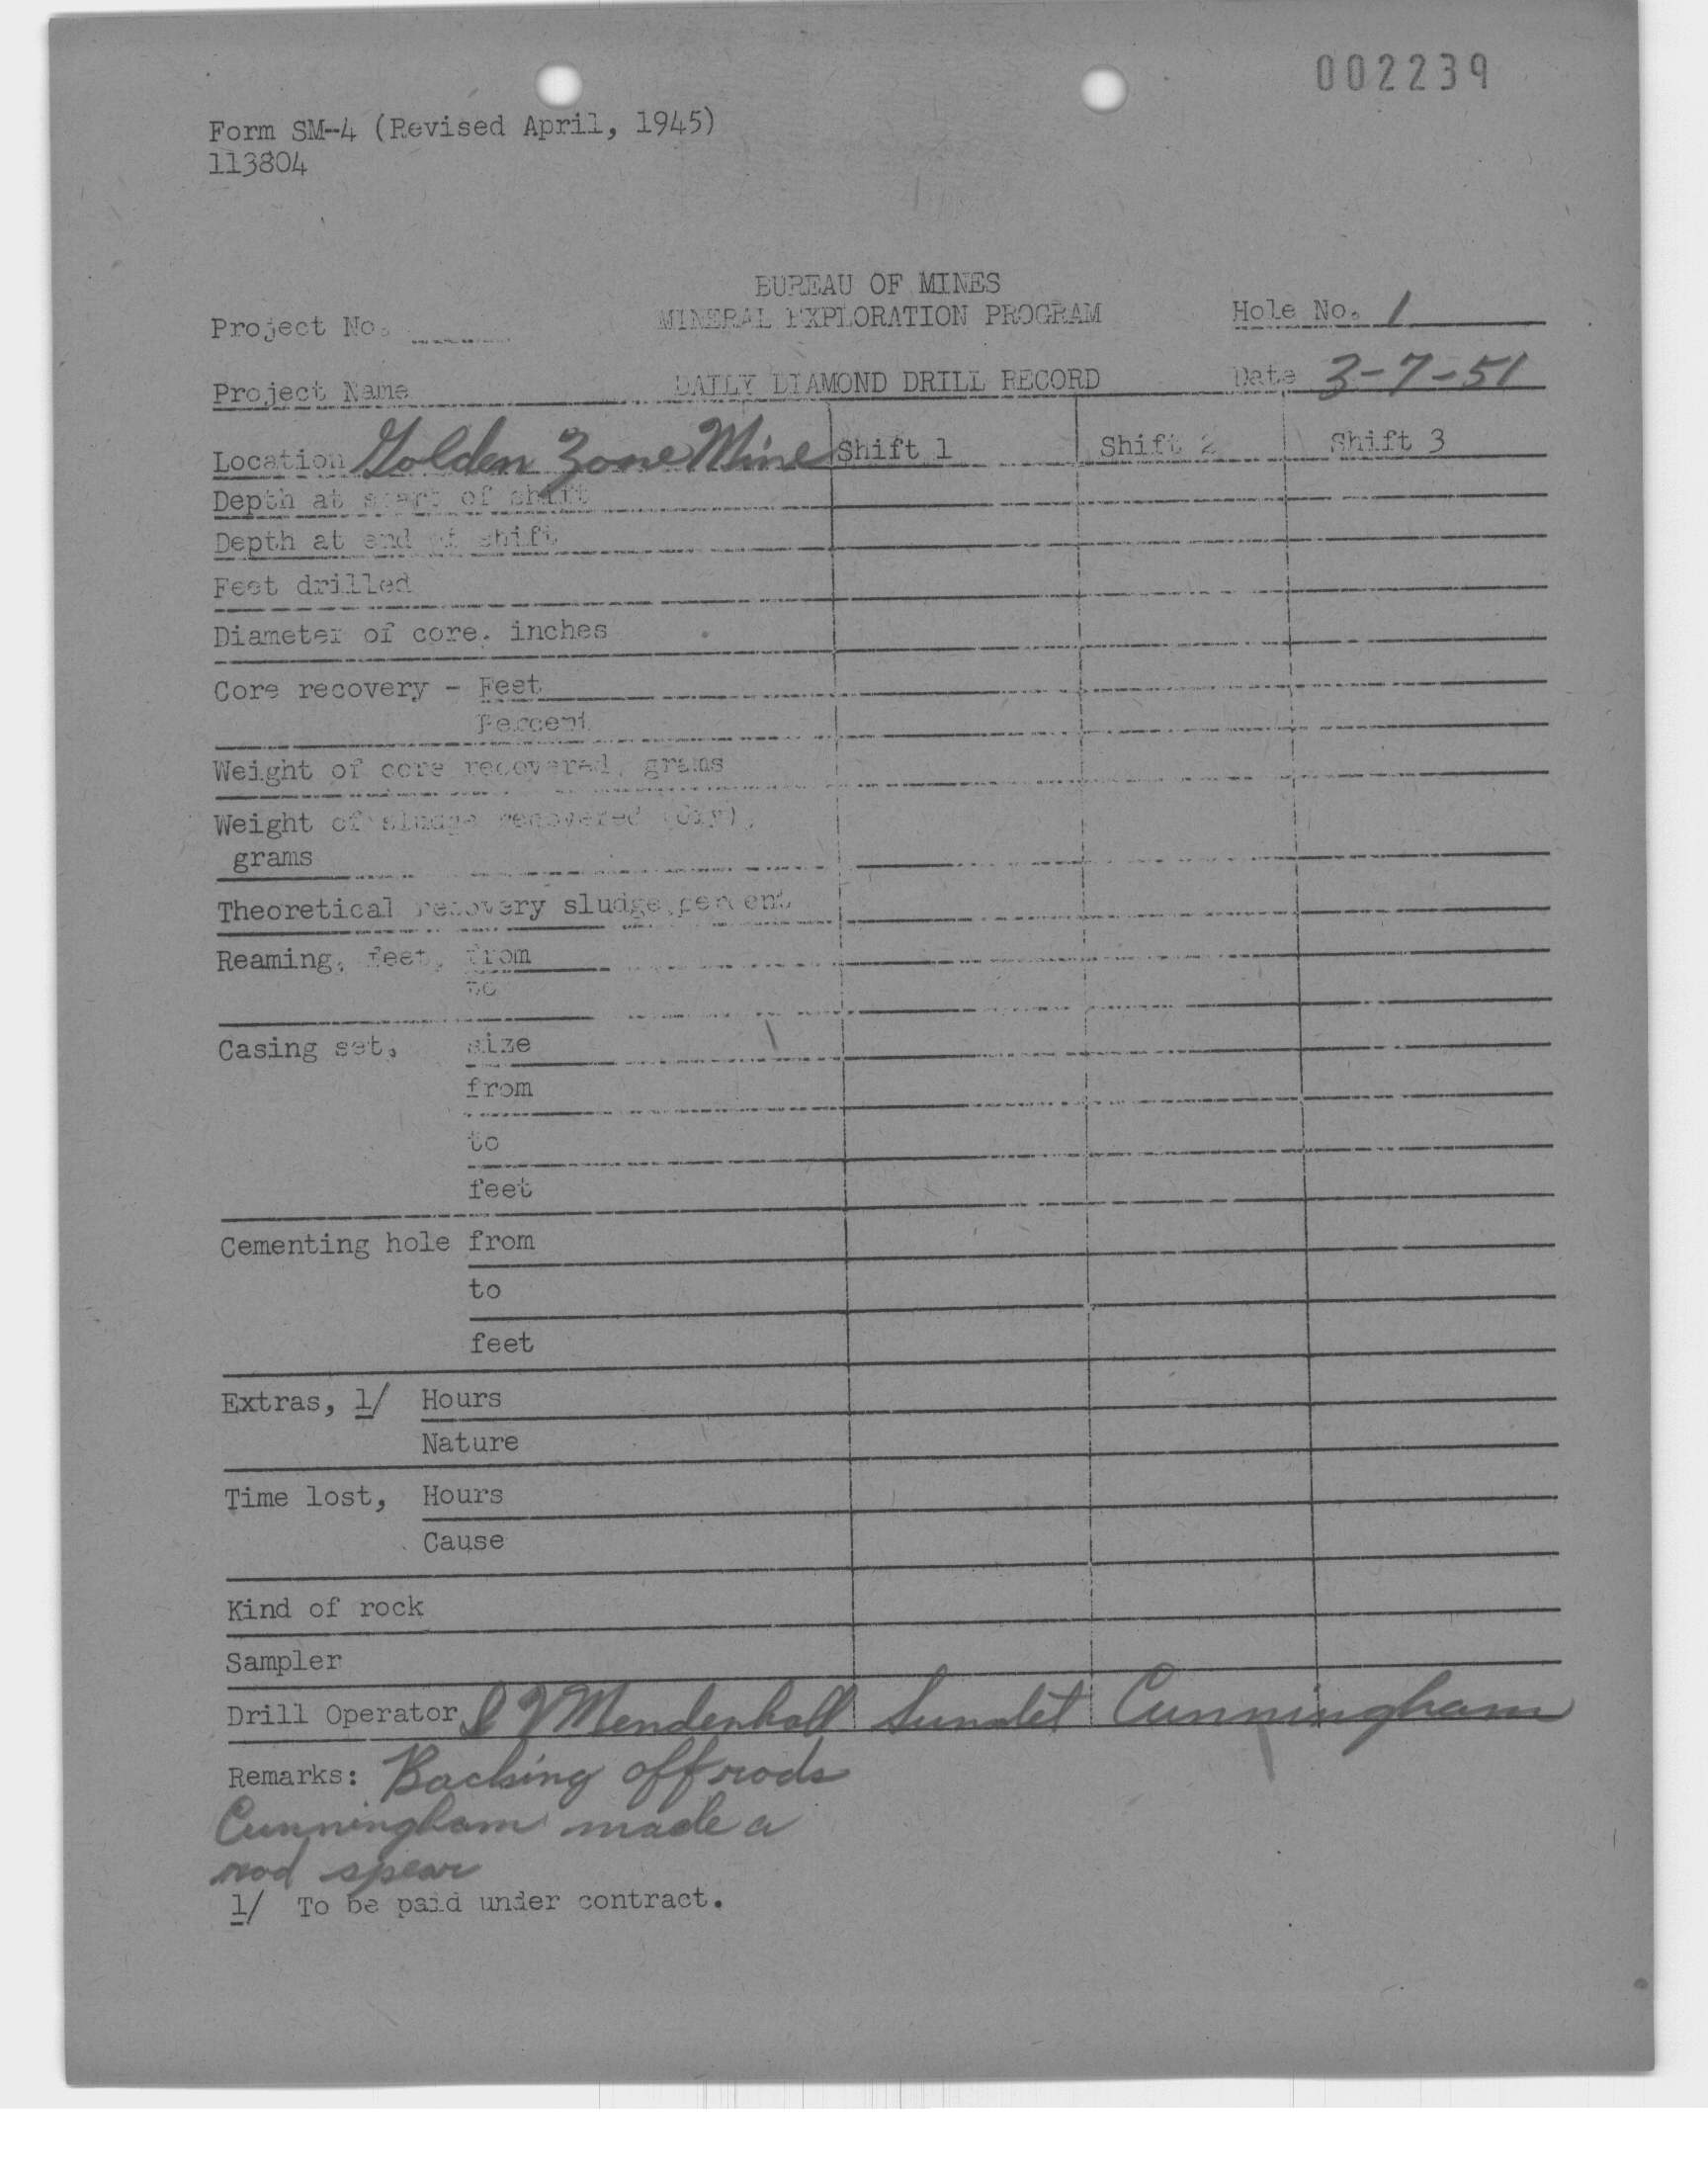 002239
Form SM-4 (Revised April, 1945)
113804
BUREAU OF MINES
Project No. MINERAL EXPLORATION PROGRAM Hole No. 1
Project Name DAILY DIAMOND DRILL RECORD Date 3-7-51
Location Golden Zone Mine Shift 1 Shift 2 Shift 3
Depth at start of shift
Depth at end of shift
Feet drilled
Diameter of core, inches
Core recovery - Feet
Percent
Weight of core recovered, grams
Weight of sludge recovered (dry),
grams
Theoretical recovery sludge, percent
Reaming, feet, from
to
Casing set, size
from
to
feet
Cementing hole from
to
feet
Extras, 1/ Hours
Nature
Time lost, Hours
Cause
Kind of rock
Sampler
Drill Operator Mendenhall Cunningham
Remarks: Backing off rods
Cunningham made a
rod spear
1/ To be paid under contract.